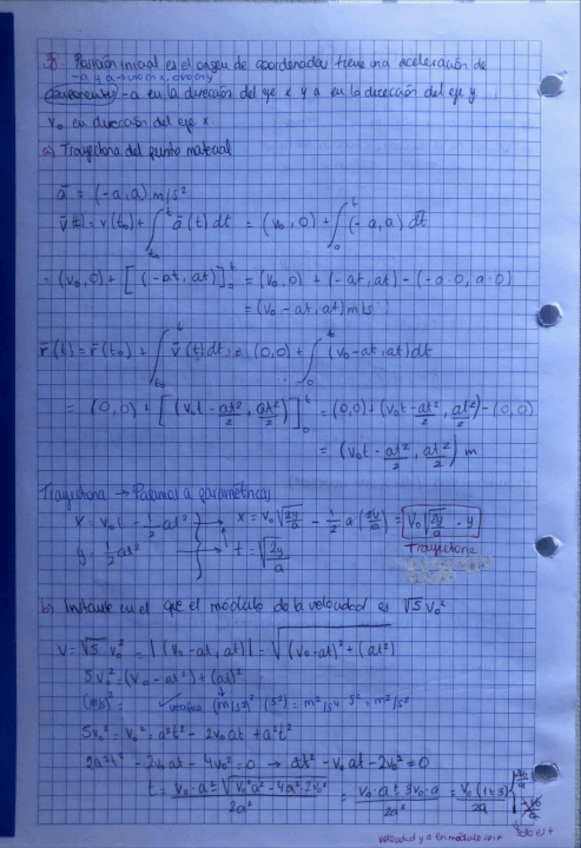 Posición inicial es el origen de coordenadas tiene una aceleración de
-a y a →
componentes -a en la dirección del eje x y a en la dirección del eje y
v₀ en dirección del eje x.
a) Trayectoria del punto material
ā = (-a, a) m/s²
v̄(t) = v(t₀) + ∫_{t₀}^{t} ā(t) dt = (v₀, 0) + ∫_{0}^{t} (-a, a) dt
= (v₀, 0) + [(-at, at)]₀ᵗ = (v₀, 0) + (-at, at) - (-a·0, a·0)
= (v₀ - at, at) m/s
r̄(t) = r̄(t₀) + ∫_{t₀}^{t} v̄(t) dt = (0,0) + ∫_{0}^{t} (v₀-at, at) dt
= (0,0) + [(v₀t - at²/2, at²/2)]₀ᵗ = (0,0) + (v₀t - at²/2, at²/2) - (0,0)
= (v₀t - at²/2, at²/2) m
Trayectoria → Pasamos a paramétricas
x = v₀t - 1/2 at² → x = v₀ √(2y/a) - 1/2 a (2y/a) = v₀ √(2y/a) - y
y = 1/2 at² → t = √(2y/a)
Trayectoria
b) Instante en el que el módulo de la velocidad es √5 v₀²
v = √5 v₀² = |(v₀-at, at)| = √((v₀-at)² + (at²)
5v₀² = (v₀ - at²) + (at)²
(m/s)² = ✓ verifica (m/s²)² (s²) = m²/s⁴ · s² = m²/s²
5v₀² = v₀² = a²t² - 2v₀at + a²t²
2a²t² - 2v₀at - 4v₀² = 0 → at² - v₀at - 2v₀² = 0
t = v₀·a ± √(v₀²a² - 4a²·2v₀²) / 2a² = v₀·a ± 3v₀·a / 2a² = v₀(1±3) / 2a
solo es +